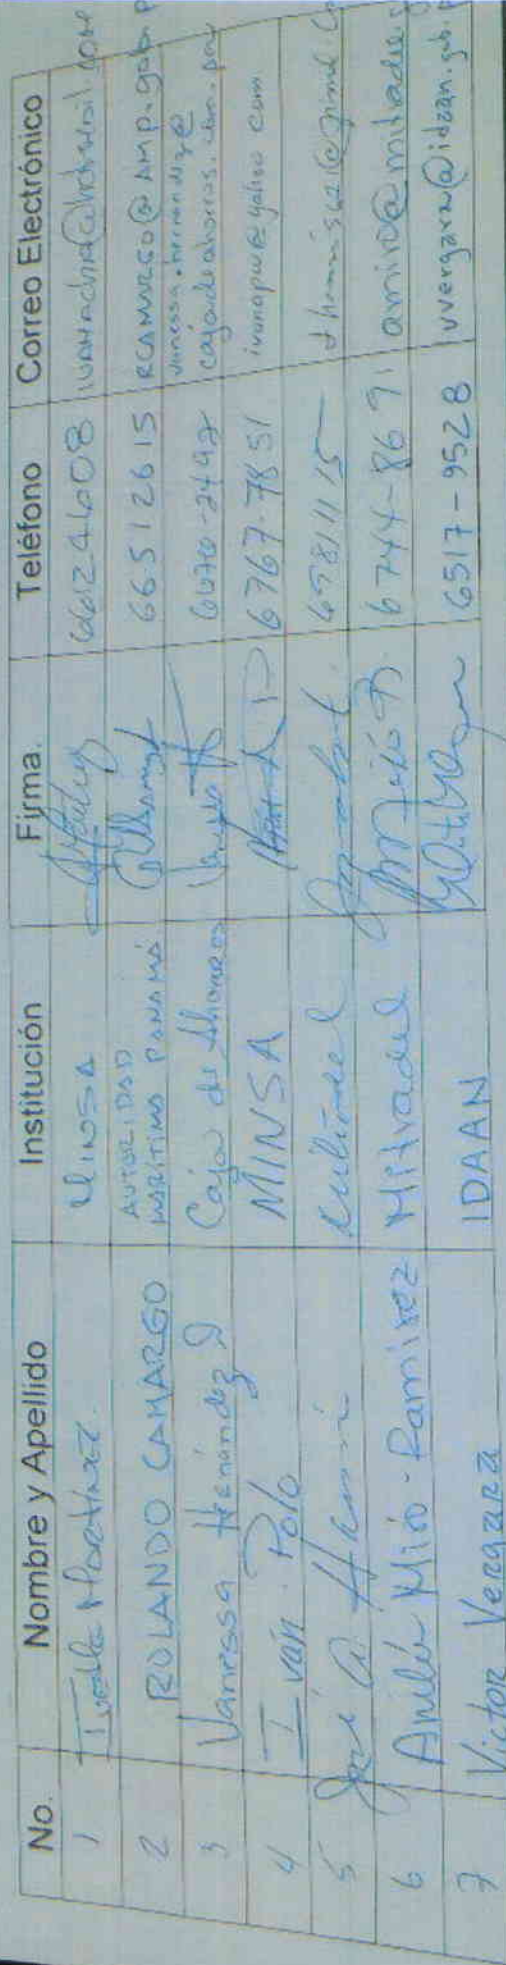 No. Nombre y Apellido Institución Firma. Teléfono Correo Electrónico
1 Martínez MINSA 66124608
2 ROLANDO CAMARGO AUTORIDAD MARÍTIMA PANAMÁ 66512615 RCAMARGO@AMP.gob.p
3 Vanessa Hernández D Caja de Ahorros 6670-2492 vanessa.hernandez@
cajadeahorros.com.pa
4 Iván Polo MINSA 6767-7851 ivanapu@yahoo com
5 José A. 65811115
6 Anilú Miró-Ramírez Mitradel 6744-8691 amiro@mitradel.g
7 Víctor Vergara IDAAN 6517-9528 vvergara@idaan.gob.p